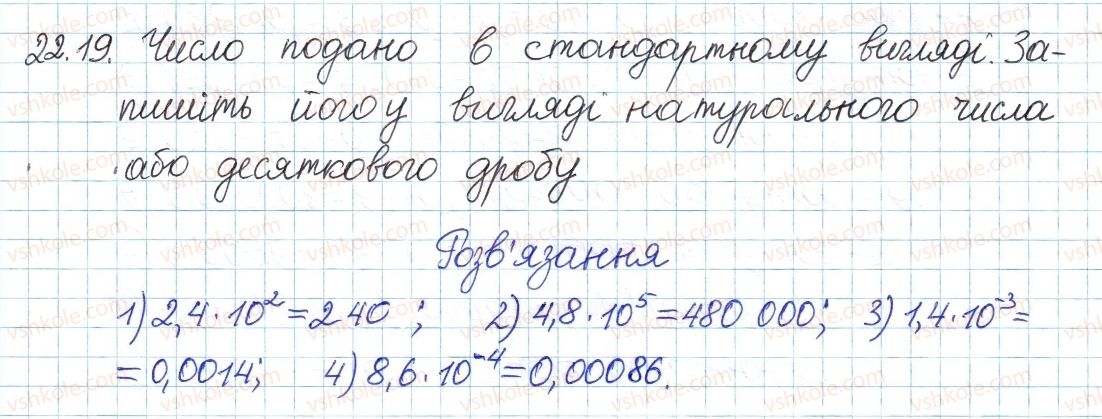 22.19. Число подано в стандартному вигляді. За-
пишіть його у вигляді натурального числа
або десяткового дробу
Розв'язання
1) 2,4·10² = 240 ; 2) 4,8·10⁵ = 480 000; 3) 1,4·10⁻³ =
= 0,0014; 4) 8,6·10⁻⁴ = 0,00086.